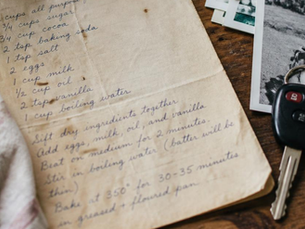 cups all purpose
3/4 cup sugar
3/4 cup cocoa
2 tsp baking soda
1 tsp salt
2 eggs
1 cup milk
1/2 cup oil
2 tsp vanilla
1 cup boiling water
Sift dry ingredients together
Add eggs, milk, oil, and vanilla
Beat on medium for 2 minutes.
Stir in boiling water (batter will be
thin)
Bake at 350° for 30-35 minutes
in greased & floured pan.